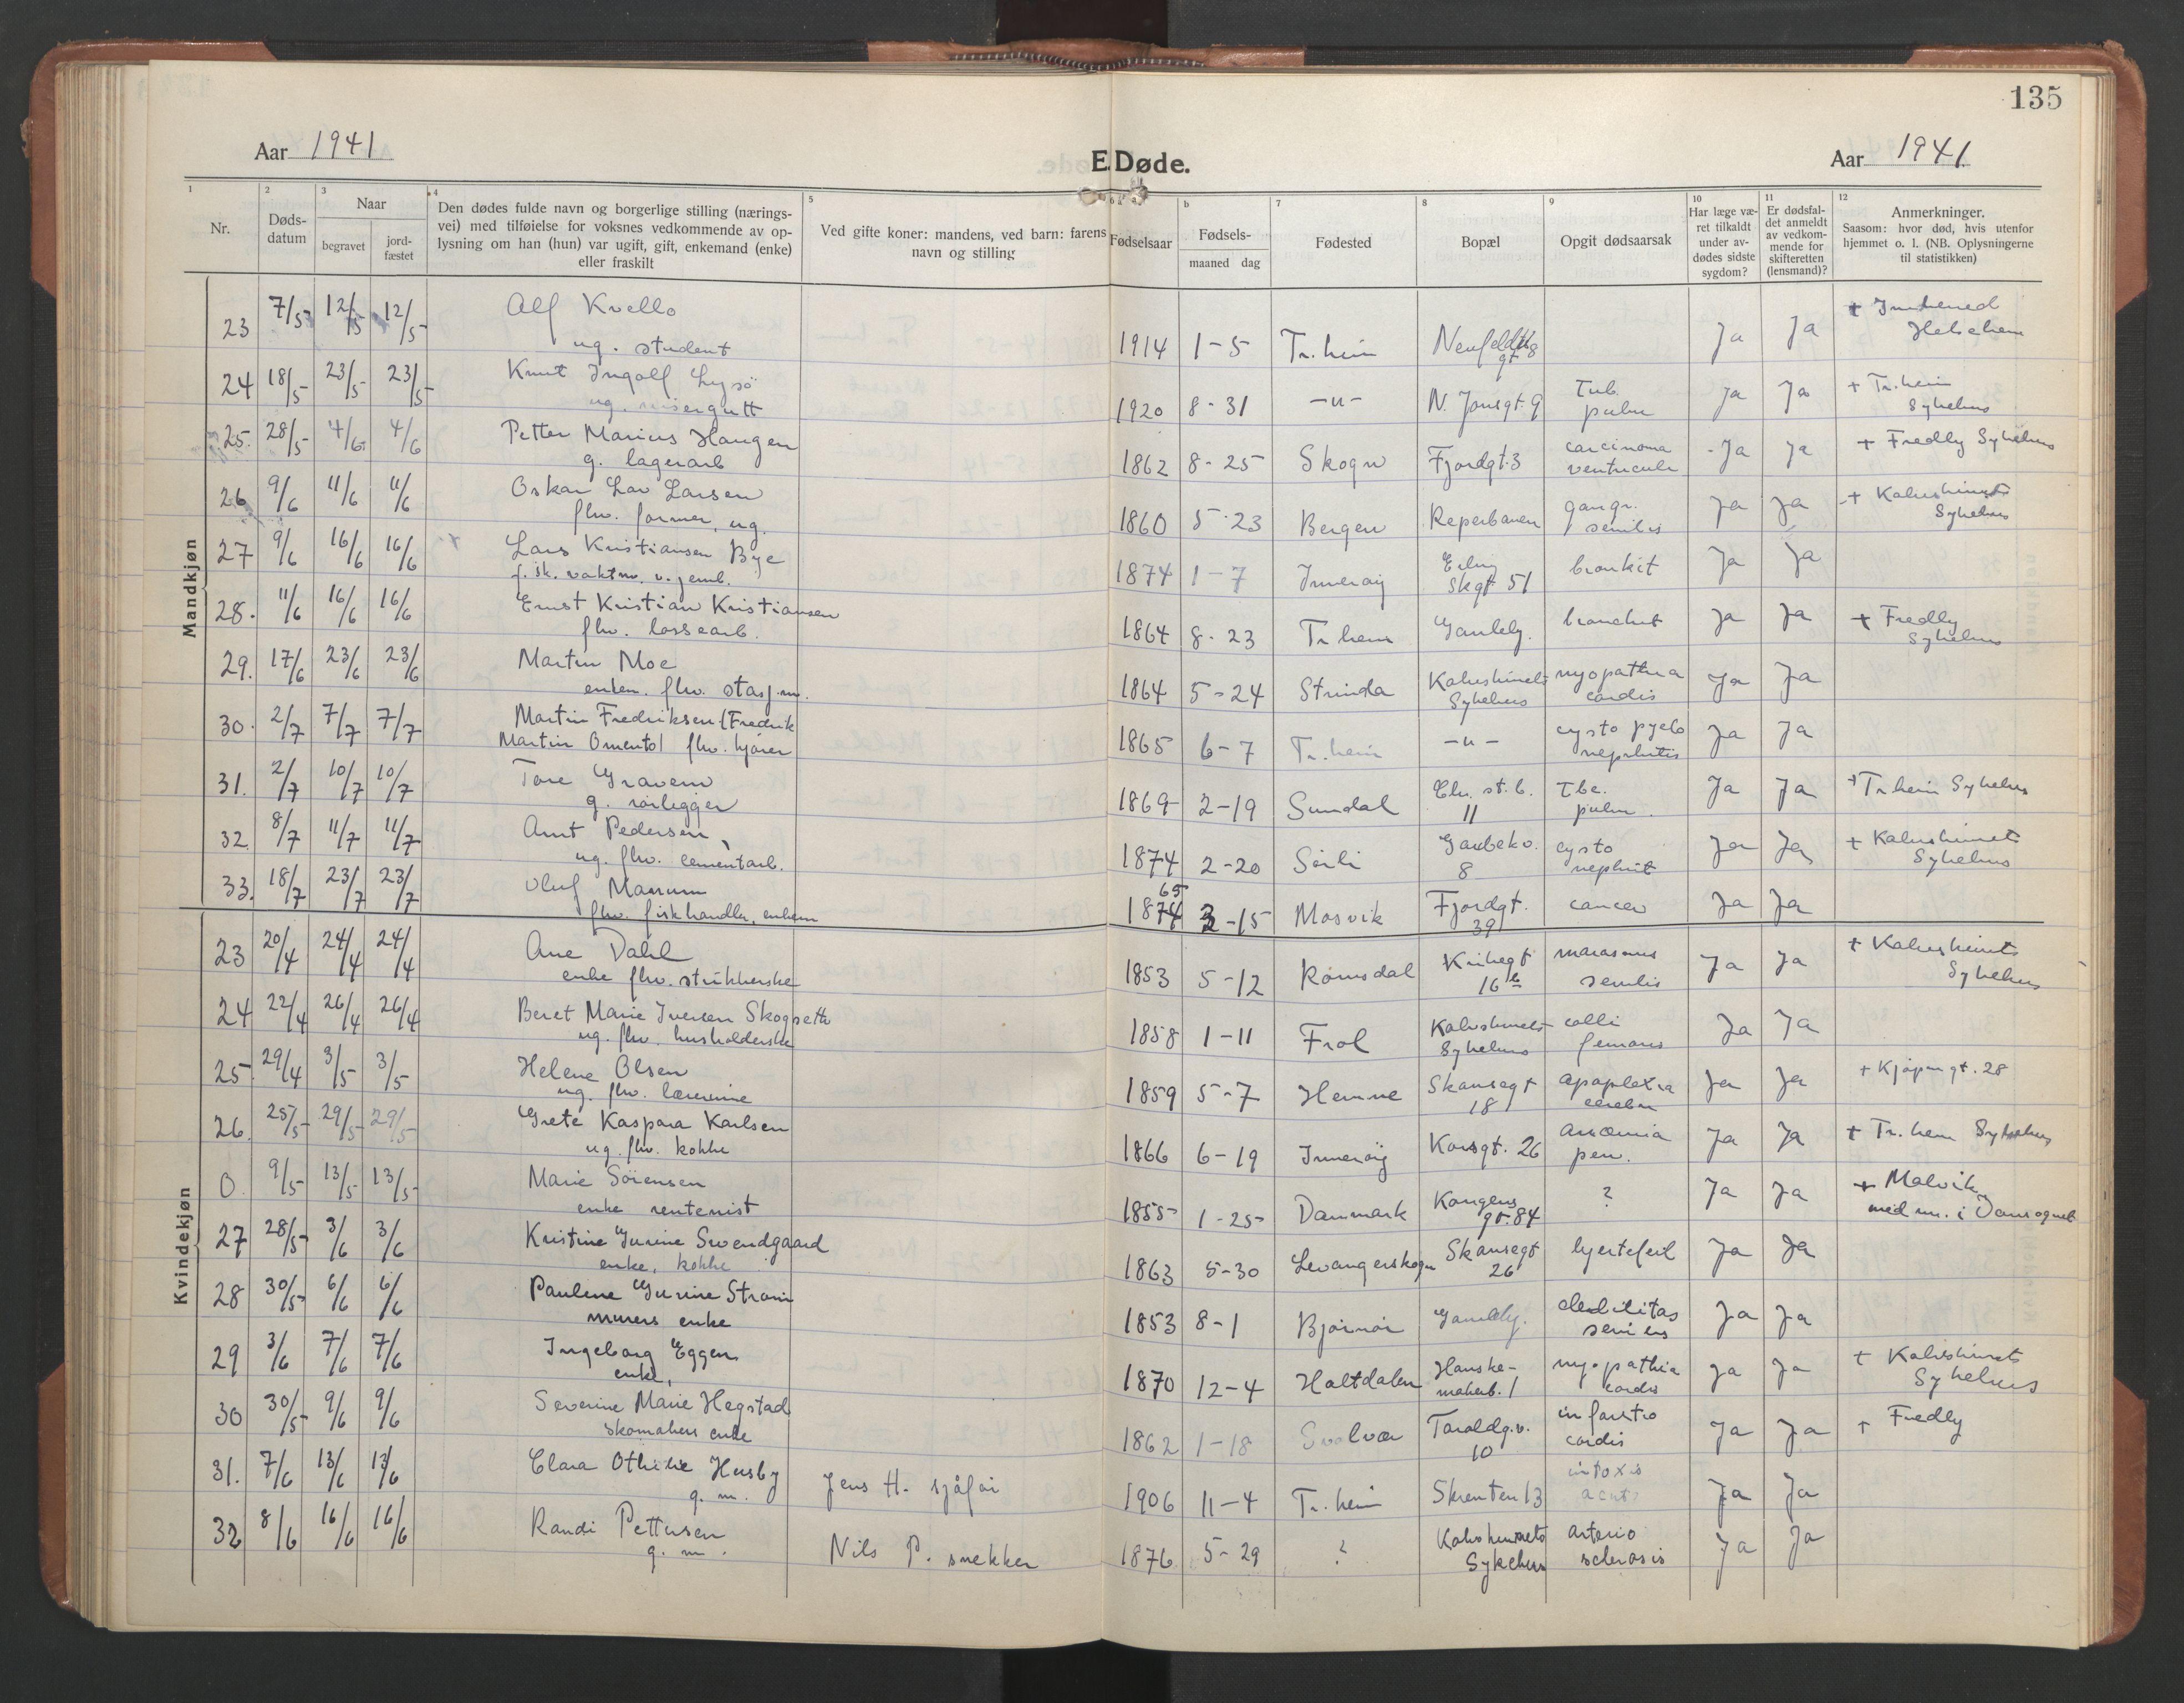 135
Aar 1941
E. Døde.
Aar 1941.
1 2 3 4 5 6 a b 7 8 9 10 11 12
Nr.
Døds-
datum
Naar
begravet
jord-
fæstet
Den dødes fulde navn og borgerlige stilling (nærings-
vei) med tilføielse for voksnes vedkommende av op-
lysning om han (hun) var ugift, gift, enkemand (enke)
eller fraskilt
Ved gifte koner: mandens, ved barn: farens
navn og stilling
Fødselsaar
Fødsels-
maaned dag
Fødested
Bopæl
Opgit dødsaarsak
Har læge væ-
ret tilkaldt
under av-
dødes sidste
sygdom?
Er dødsfal-
det anmeldt
av vedkom-
mende for
skifteretten
(lensmand)?
Anmerkninger.
Saasom: hvor død, hvis utenfor
hjemmet o. l. (NB. Oplysningerne
til statistikken)
Mandkjøn
23 7/5 12/5 12/5 Alf Kvello
ug. student 1914 1-5 Tr.heim Neufeldts gt 8 Ja Ja + Innherred
Helseheim
24 18/5 23/5 23/5 Knut Ingolf Lysö
ug. visergutt 1920 8-31 -"- N. Jonsgt. 9 Tub.
pulm Ja Ja + Tr.heim
Sykehus
25. 28/5 4/6 4/6 Petter Marius Haugen
g. lagerarb 1862 8-25 Skogn Fjordgt. 3 carcinoma
ventriculi Ja Ja + Fredly Sykehus
26 9/6 11/6 11/6 Oskar Lav Larsen
fhv. former, ug. 1860 5-23 Bergen Reperbanen gangr.
senilis Ja Ja + Kalvskinnets
Sykehus
27 9/6 16/6 16/6 x Lars Kristiansen Bye
f. sk. vaktm. v. jernb. 1874 1-7 Inneröy Erling
Skgt 51 bronkit Ja Ja
28. 11/6 16/6 16/6 Ernst Kristian Kristiansen
fhv. lossearb. 1864 8-23 Tr heim Gamleby. bronchit Ja Ja + Fredly
Sykehus
29. 17/6 23/6 23/6 Martin Moe
enkem. fhv. stasj.m. 1864 5-24 Strinda Kalvskinnets
Sykehus myopathia
cordis Ja Ja
30. 2/7 7/7 7/7 Martin Fredriksen (Fredrik
Martin Omento) fhv. kjører 1865 6-7 Tr.heim -"- cysto pyelo
nephritis Ja Ja
31. 2/7 10/7 10/7 Tore Gravem
g. rørlegger 1869 2-19 Sundal Chr. st. b.
11 Tbc.
pulm. Ja Ja + Tr.heim Sykehus
32. 8/7 11/7 11/7 Arnt Pedersen,
ug. fhv. cementarb. 1874 2-20 Sørli Gaubekv.
8 cysto
nephrit Ja Ja + Kalvskinnets
Sykehus
33. 18/7 23/7 23/7 Oluf Manum
fhv. fiskhandler, enkem 1874 65 3-15 Mosvik Fjordgt.
39 cancer Ja Ja
Kvindekjøn
23 20/4 24/4 24/4 Ane Dahl
enke fhv. strikkerske 1853 5-12 Romsdal Krihegt
16 b marasmus
senilis Ja Ja + Kalvskinnets
Sykehus
24 22/4 26/4 26/4 Beret Marie Iversen Skogseth
ug. fhv. husholderske 1858 1-11 Frol Kalvskinnets
Sykehus colli
femoris Ja Ja
25 29/4 3/5 3/5 Helene Olsen
ug. fhv. lærerinne 1859 5-7 Hemne Skansegt
18 apoplexia
cerebri Ja Ja + Kjöpmgt. 28
26. 25/5 29/5 29/5 Grete Kaspara Karlsen
ug. fhv. kokke 1866 6-19 Inneröy Korsgt. 26 anæmia
pern. Ja Ja + Tr.heim Sykehus
0. 9/5 13/5 13/5 Marie Sörensen
enke rentenist 1855 1-25 Danmark Kongens
gt. 84 ? Ja Ja + Malvik,
med nr. i Domsognet
27 28/5 3/6 3/6 Kristine Gurine Svendgaard
enke, kokke 1863 5-30 Levangerskogn Skansegt
26 hjertefeil Ja Ja
28 30/5 6/6 6/6 Pauline Gurine Ström
murers enke 1853 8-1 Bjørnør Gamleby. debilitas
seniens Ja Ja
29 3/6 7/6 7/6 Ingeborg Eggen
enke, 1870 12-4 Holtdalen Hanske-
makerb. 1 myopathia
cordis Ja Ja + Kalvskinnets
Sykehus
30 30/5 9/6 9/6 Severine Marie Hegstad
skomakers enke 1862 1-18 Svolvær Taraldg.v.
10 infarctio
cordis Ja Ja + Fredly
31. 7/6 13/6 13/6 Clara Othilie Husby
g. m. Jens H. sjåfør 1906 11-4 Tr.heim Skrenten 13 intoxis
acut Ja Ja
32 8/6 16/6 16/6 Randi Pettersen
g. m. Nils P. snekker 1876 5-29 ? Kalvskinnets
Sykehus arterio
sclerosis Ja Ja